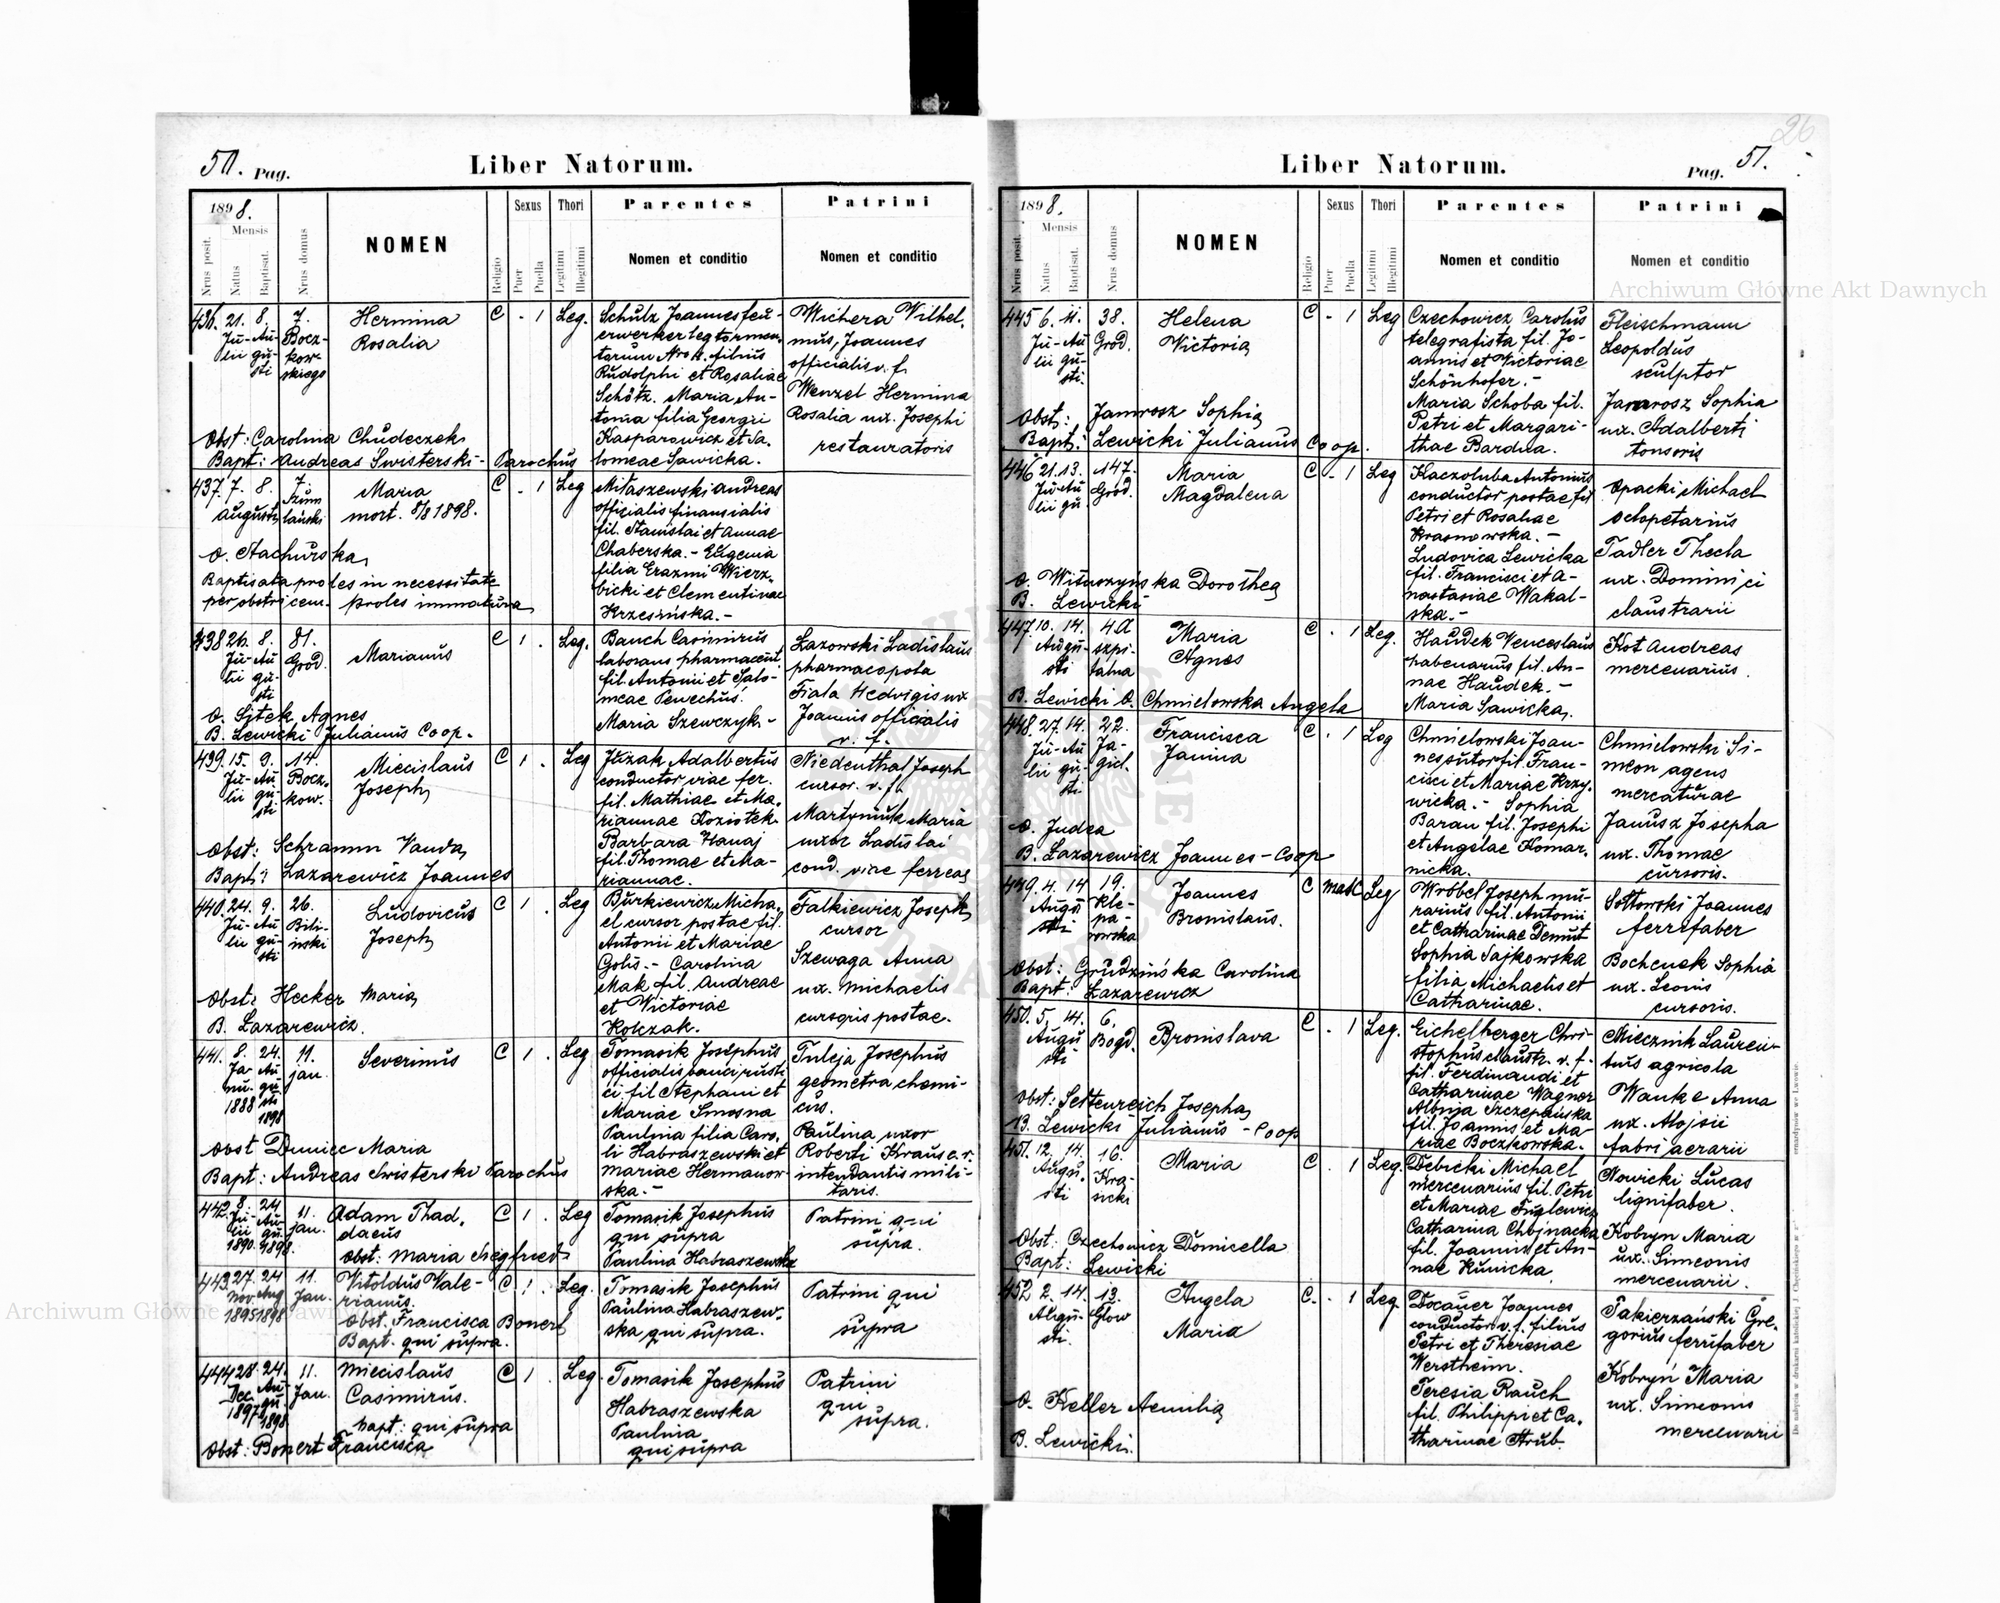 50. Pag.
Liber Natorum.
1898.
Mensis
Nrus posit.
Natus
Baptisat.
Nrus domus
NOMEN
Religio
Sexus
Puer
Puella
Thori
Legitimi
Illegitimi
Parentes
Nomen et conditio
Patrini
Nomen et conditio
436. 21. 8. 7.
Ju- Au- Bocz-
lii gu- kow-
sti skiego
Hermina
Rosalia
C - 1 Leg.
Schulz Joannes feu-
erwerker leg tormen-
tarum Nro filius
Rudolphi et Rosaliae
Schötz. Maria An-
tonia filia Georgii
Kasparowicz et Sa-
lomeae Sawicka.
Wichera Wilhel-
mus, Joannes
officialis v. f.
Wenzel Hermina
Rosalia ux. Josephi
restauratoris
Obst: Carolina Chudeczek
Bapt: Andreas Swisterski - Parochus
437. 7. 8. 7.
augusti
Maria
mort. 8/8 1898.
C - 1 Leg
Mitaszewski Andreas
officialis finansialis
fil. Stanislai et Annae
Chaberska. - Eugenia
filia Erazmi Wierz-
bicki et Clementinae
Krzesińska. -
O. Stachurska
Baptisata proles in necessitate
per obstricem. proles immatura
438 26. 8. 81.
Ju- Au- Grod.
lii gu-
sti
Marianus
C 1 . Leg.
Bauch Casimirus
laborans pharmaceut.
fil. Antonii et Salo-
meae
Maria Szewczyk -
Łazowski Ladislaus
pharmacopola
Fiala Hedvigis ux
Joannis officialis
v. f.
O. Sitek Agnes
B. Lewicki Julianus Coop.
439. 15. 9. 14.
Ju- Au- Bocz-
lii gu- kow.
sti
Miecislaus
Joseph
C 1 . Leg
Adalbertus
conductor viae fer.
fil. Mathiae et Ma-
riannae Koziołek
Barbara Hanaj
fil. Thomae et Ma-
riannae.
Niedenthal Joseph
cursor. v. f.
Martyniuk Maria
uxor Ladislai
cond. viae ferreae
Obst: Schramm Vanda
Bapt: Łazarewicz Joannes
440. 24. 9. 26.
Ju- Au- Bili-
lii gu- inski
sti
Ludovicus
Joseph
C 1 . Leg
Burkiewicz Micha-
el cursor postae fil.
Antonii et Mariae
Golis. - Carolina
Mak fil. Andreae
et Victoriae
Kolczak.
Falkiewicz Joseph
cursor
Szewaga Anna
ux. Michaelis
cursoris postae.
Obst: Hecker Maria
B. Łazarewicz.
441. 8. 24. 11.
Ja- Au- jan.
nu- gu-
1888 sti
1898
Severinus
C 1 . Leg
Tomasik Josephus
officialis banci rusti
ci fil Stephani et
Mariae Smosna
Paulina filia Caro-
li Habraszewski et
Mariae Hermanow-
ska. -
Tuleja Josephus
geometra chemi-
cus.
Paulina uxor
Roberti Kraus c. r.
intendantis mili-
taris.
Obst Duniec Maria
Bapt: Andreas Swisterski Parochus
442. 8. 24 11.
Ju- Au- jan.
lii gu-
1890. 1898.
Adam Thad.
daeus
C 1 . Leg
Tomasik Josephus
qui supra
Paulina Habraszewska
Patrini qui
supra.
Obst: Maria Siegfried
443 27. 24 11.
Nov. Aug Jan.
1895 1898
Vitoldus Vale-
rianus.
C 1 . Leg.
Tomasik Josephus
Paulina Habraszew-
ska qui supra.
Patrini qui
supra
Obst. Francisca Bonert
Bapt. qui supra.
444 28. 24. 11.
Dec. Au- Jan.
1897 gu.
1898
Miecislaus
Casimirus.
C 1 . Leg.
Tomasik Josephus
Habraszewska
Paulina
qui supra
Patrini
qui
supra.
bapt: qui supra
Obst: Bonert Francisca
26
Liber Natorum.
Pag. 51.
1898.
Mensis
Nrus posit.
Natus
Baptisat.
Nrus domus
NOMEN
Religio
Sexus
Puer
Puella
Thori
Legitimi
Illegitimi
Parentes
Nomen et conditio
Patrini
Nomen et conditio
445 6. 11. 38.
Ju- Au Grod.
lii gu-
sti.
Helena
Victoria
C - 1 Leg
Czechowicz Carolus
telegrafista fil. Jo-
annis et Victoriae
Schönhofer. -
Maria Schoba fil.
Petri et Margari-
thae Bardda.
Fleischmann
Leopoldus
sculptor
Jamrosz Sophia
ux. Adalberti
tonsoris
Obst: Jamrosz Sophia
Bapt: Lewicki Julianus Coop.
446 21. 13. 147.
Ju- Au Grod.
lii gu.
Maria
Magdalena
C - 1 Leg
Kaczoluba Antonius
conductor postae fil
Petri et Rosaliae
Krasnowska. -
Ludovica Lewicka
fil. Francisci et A-
nastasiae Wakal-
ska. -
Opacki Michael
sclopetarius
Tadler Thecla
ux. Dominici
claustrarii
O. Dorothea
B. Lewicki
447. 10. 14. 4a
Augu- szpi-
sti talna
Maria
Agnes
C . 1 Leg.
Haudek Venceslaus
habenarius fil. An-
nae Haudek. -
Maria Sawicka.
Kot Andreas
mercenarius.
B. Lewicki O. Chmielowska Angela
448. 27. 14. 22.
Ju- Au Ja-
lii gu- giel.
sti
Francisca
Janina
C . 1 Leg
Chmielowski Joan-
nes sutor fil. Fran-
cisci et Mariae Krzy-
wicka. - Sophia
Baran fil. Josephi
et Angelae Komar-
nicka.
Chmielowski Si-
meon agens
mercaturae
Janusz Josepha
ux. Thomae
cursoris.
O. Judea
B. Łazarewicz Joannes - Coop
449. 4. 14 19.
Augu Kle-
sti pa-
rowska
Joannes
Bronislaus.
C masc Leg
Wróbel Joseph mu-
rarius fil. Antonii
et Catharinae Demut
Sophia Sajkowska
filia Michaelis et
Catharinae.
Sottowski Joannes
ferrifaber
Bochenek Sophia
ux. Leonis
cursoris.
Obst: Grudzińska Carolina
Bapt: Łazarewicz
450. 5. 14. 6.
Augu Bogd.
sti
Bronislava
C . 1 Leg.
Eichelberger Chri-
stophus claustr. v. f.
fil. Ferdinandi et
Catharinae Wagner
Albina Szczepańska
fil. Joannis et Ma
riae Boczkowska.
Miecznik Lauren-
tius agricola
Wanke Anna
ux. Alojsii
fabri aerarii
Obst: Settenreich Josepha
B. Lewicki Julianus - Coop
451. 12. 14. 16.
Augu. Kra-
sti sicki
Maria
C . 1 Leg.
Debicki Michael
mercenarius fil. Petri
et Mariae
Catharina Chojnacka
fil. Joannis et An-
nae Kunicka.
Nowicki Lucas
lignifaber.
Kobryn Maria
ux. Simeonis
mercenarii.
Obst: Czechowicz Domicella
Bapt: Lewicki
452 2. 14. 13.
Augu- Glow
sti.
Angela
Maria
C. . 1 Leg.
Docauer Joannes
conductor v. f. filius
Petri et Theresiae
Werstheim.
Teresia Rauch
fil. Philippi et Ca-
tharinae Strub.
Pakierzański Gre-
gorius ferrifaber
Kobryń Maria
ux. Simeonis
mercenarii
O. Keller Aemilia
B. Lewicki.
Archiwum Główne Akt Dawnych
Archiwum Główne Akt Dawnych